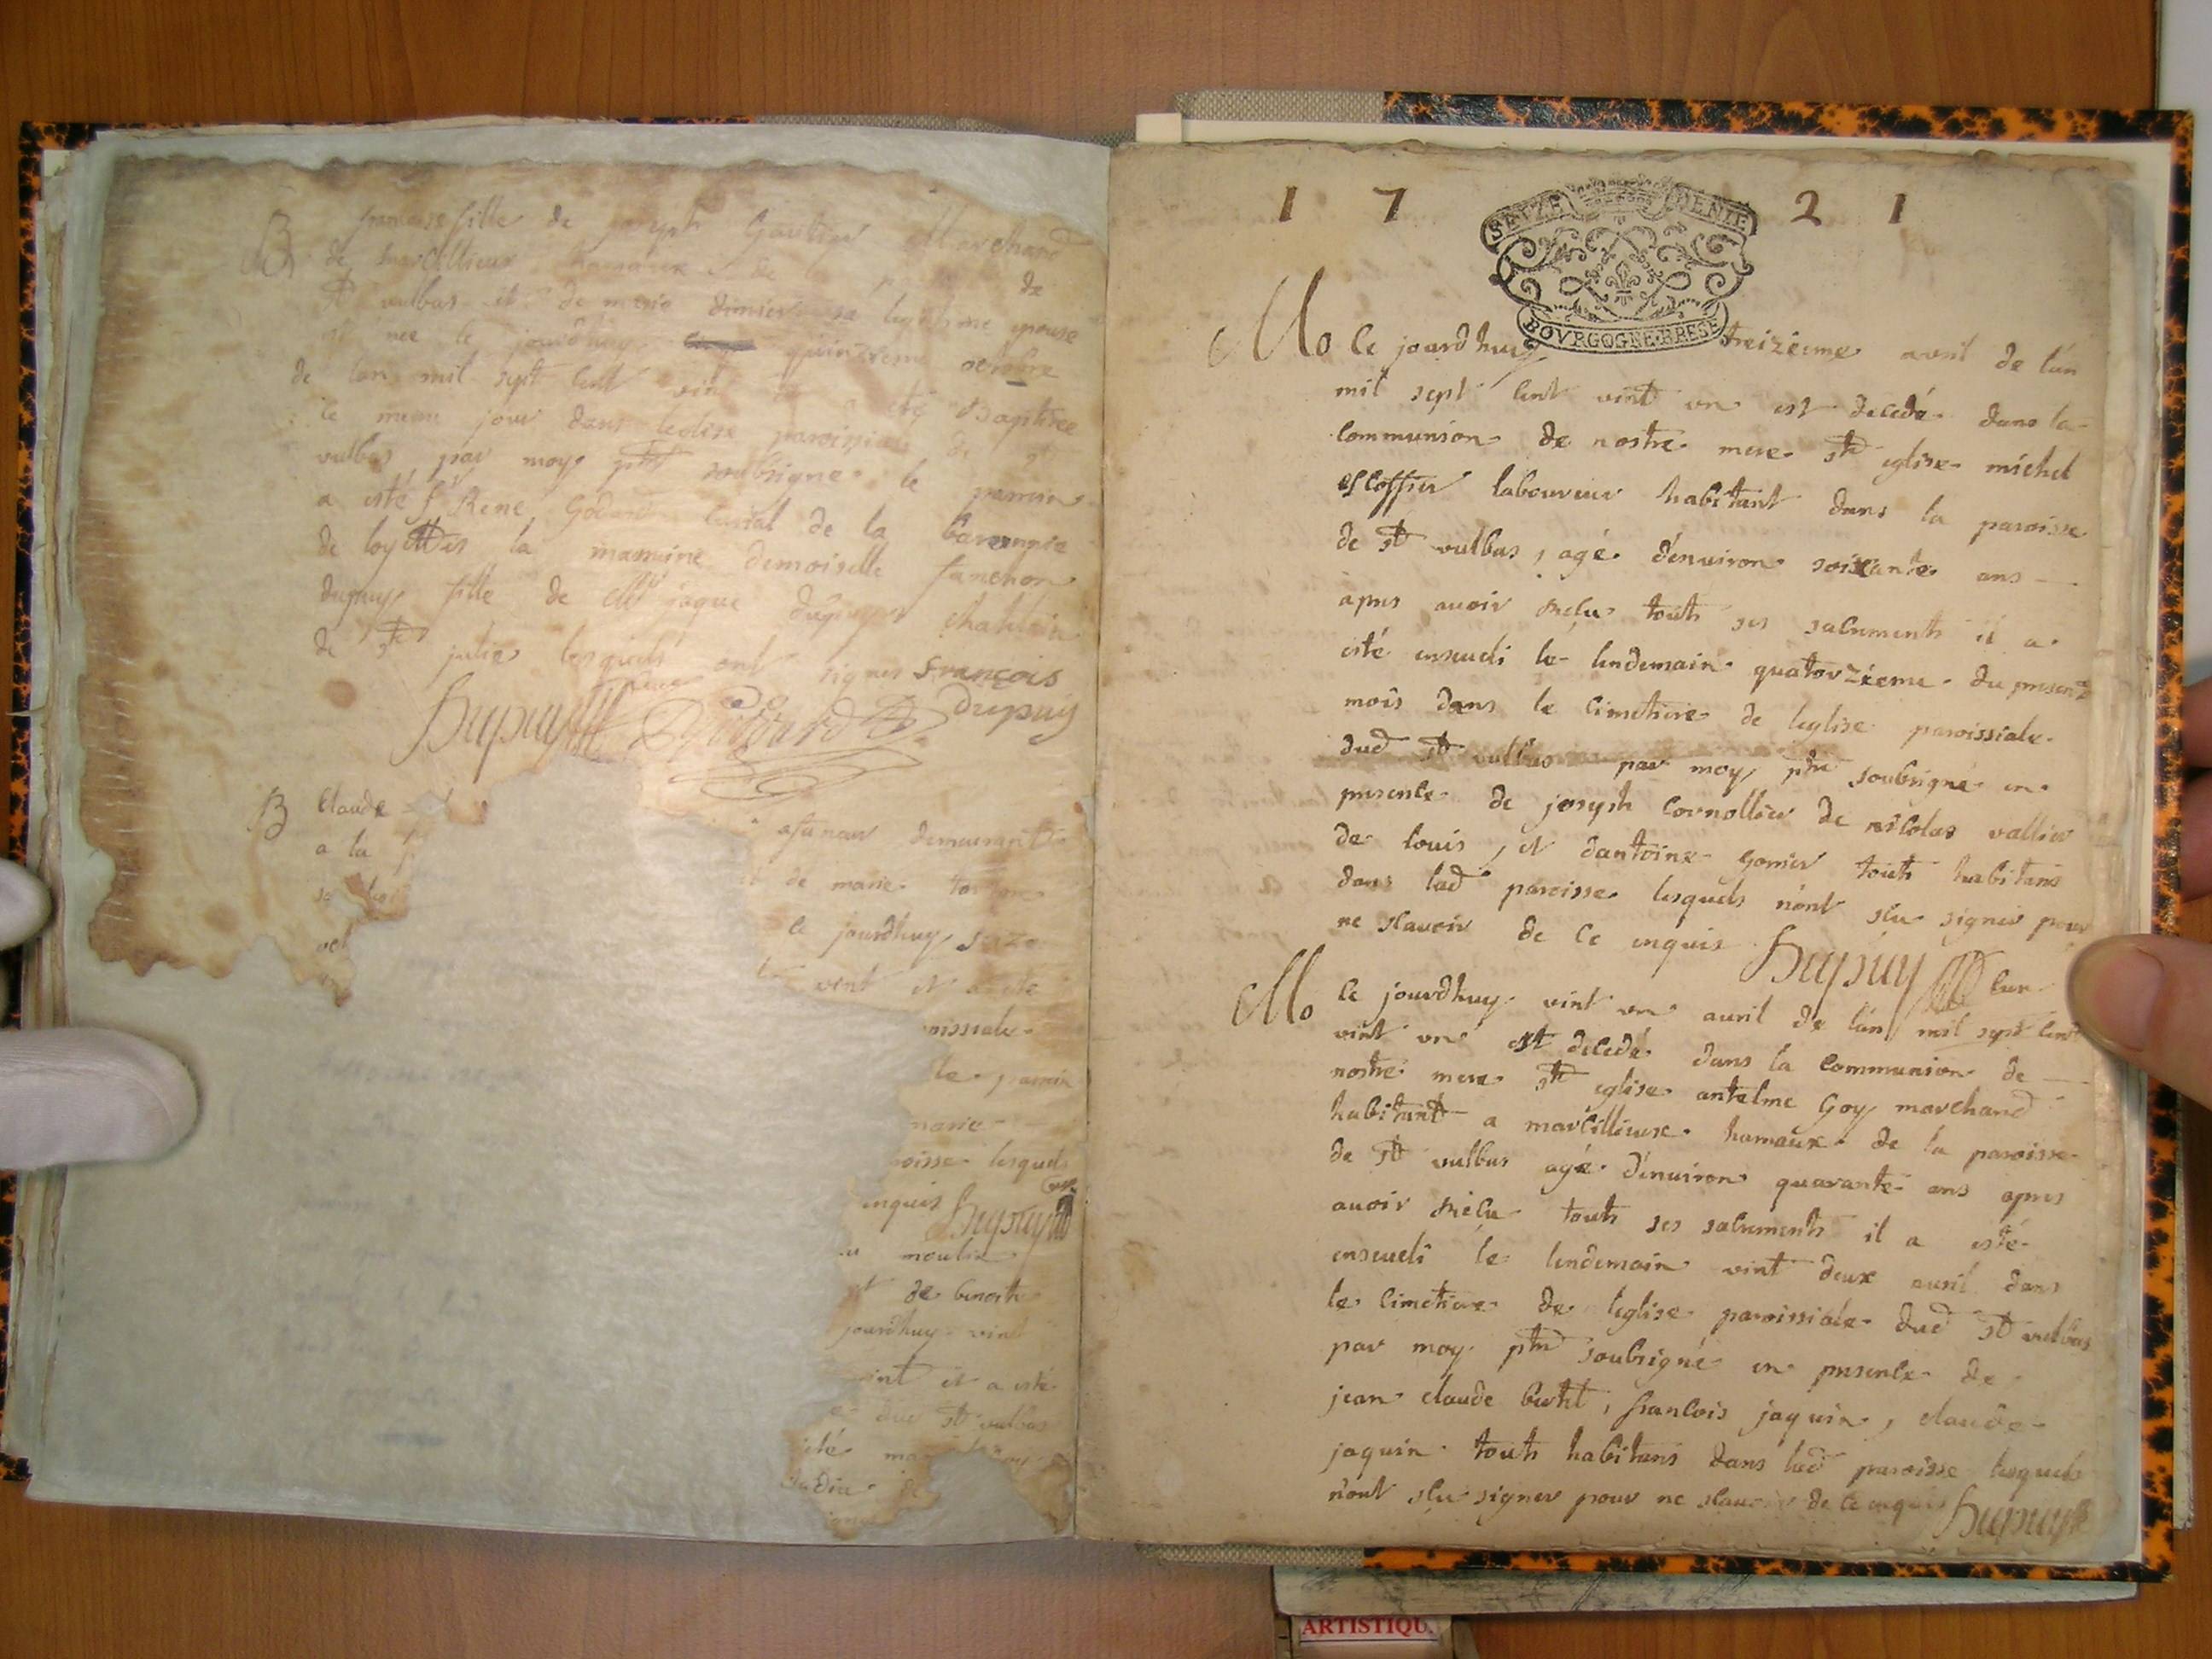 B francoise fille de joseph Gautier Marchand
de marcillieux hamaux de de
st vulbas et de marie dimier sa legitime epouse
est nee le jourdhuy quinzieme octobre
de lan mil sept cent vint et a esté Baptisee
le meme jour dans leglise paroissiale de st
vulbas par moy ptre soubsigné le parrain
a esté sr Rene Godard curial de la baronnie
de loyettes la marraine demoiselle fanchon
dupuys fille de Mre jaque dupuys chatelain
de ste julie lesquels ont signes françois
Dupuy curé Godard dupuy
B Claude
a la demeurant
de marie
oct ce jourdhuy seze
vint et a esté
oissiale
le parrain
marie
oisse lesquels
enquis Dupuy curé
moulin
et de benoite
jourdhuy vint
vint et a esté
dud st vulbas
1 7 2 1
SEIZE DENIE
BOVRGOGNE·BRESE
Mo Ce jourdhuy treizieme avril de lan
mil sept cent vint un est decedé dans la
communion de nostre mere ste eglise michel
escoffier laboureur habitant dans la paroisse
de st vulbas, agé d'environ soixante ans
apres avoir reçu touts ses sacrements il a
esté enseveli le lendemain quatorzieme du present
mois dans le cimetiere de leglise paroissiale
dud st vulbas par moy ptre soubsigné en
presence de joseph Cornollier de nicolas vallier
de louis, et dantoine gonier touts habitans
dans lad paroisse lesquels n'ont sçu signer pour
ne sçavoir de ce enquis Dupuy curé
Mo Ce jourdhuy vint un avril de lan mil sept cent
vint un est decedé dans la communion de
nostre mere ste eglise antelme Goy marchand
habitant a marcillieux hamaux de la paroisse
de st vulbas agé d'environ quarante ans apres
avoir reçu touts ses sacrements il a esté
enseveli le lendemain vint deux avril dans
le cimetiere de leglise paroissiale dud st vulbas
par moy ptre soubsigné en presence de
jean claude butet, françois jaquin, claude
jaquin touts habitans dans lad paroisse lesquels
n'ont sçu signer pour ne sçavoir de ce enquis Dupuy
ARTISTIQU